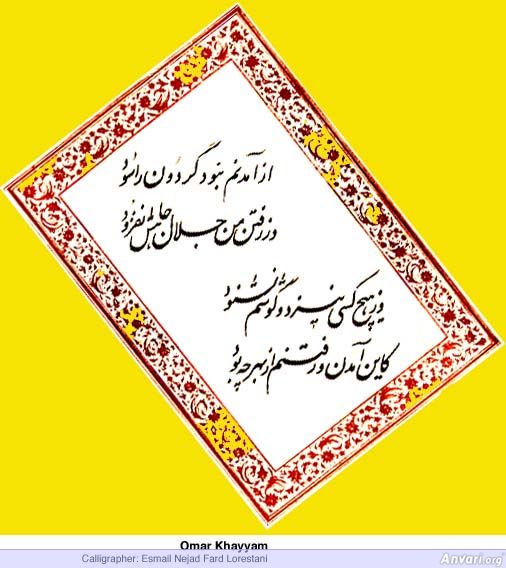 از آمدنم نبود گردون را سود
وز رفتن من جلال و جاهش نفزود
وز هیچ کسی نیز دو گوشم نشنود
کاین آمدن و رفتنم از بهر چه بود
Omar Khayyam
Calligrapher: Esmail Nejad Fard Lorestani
Anvari.org